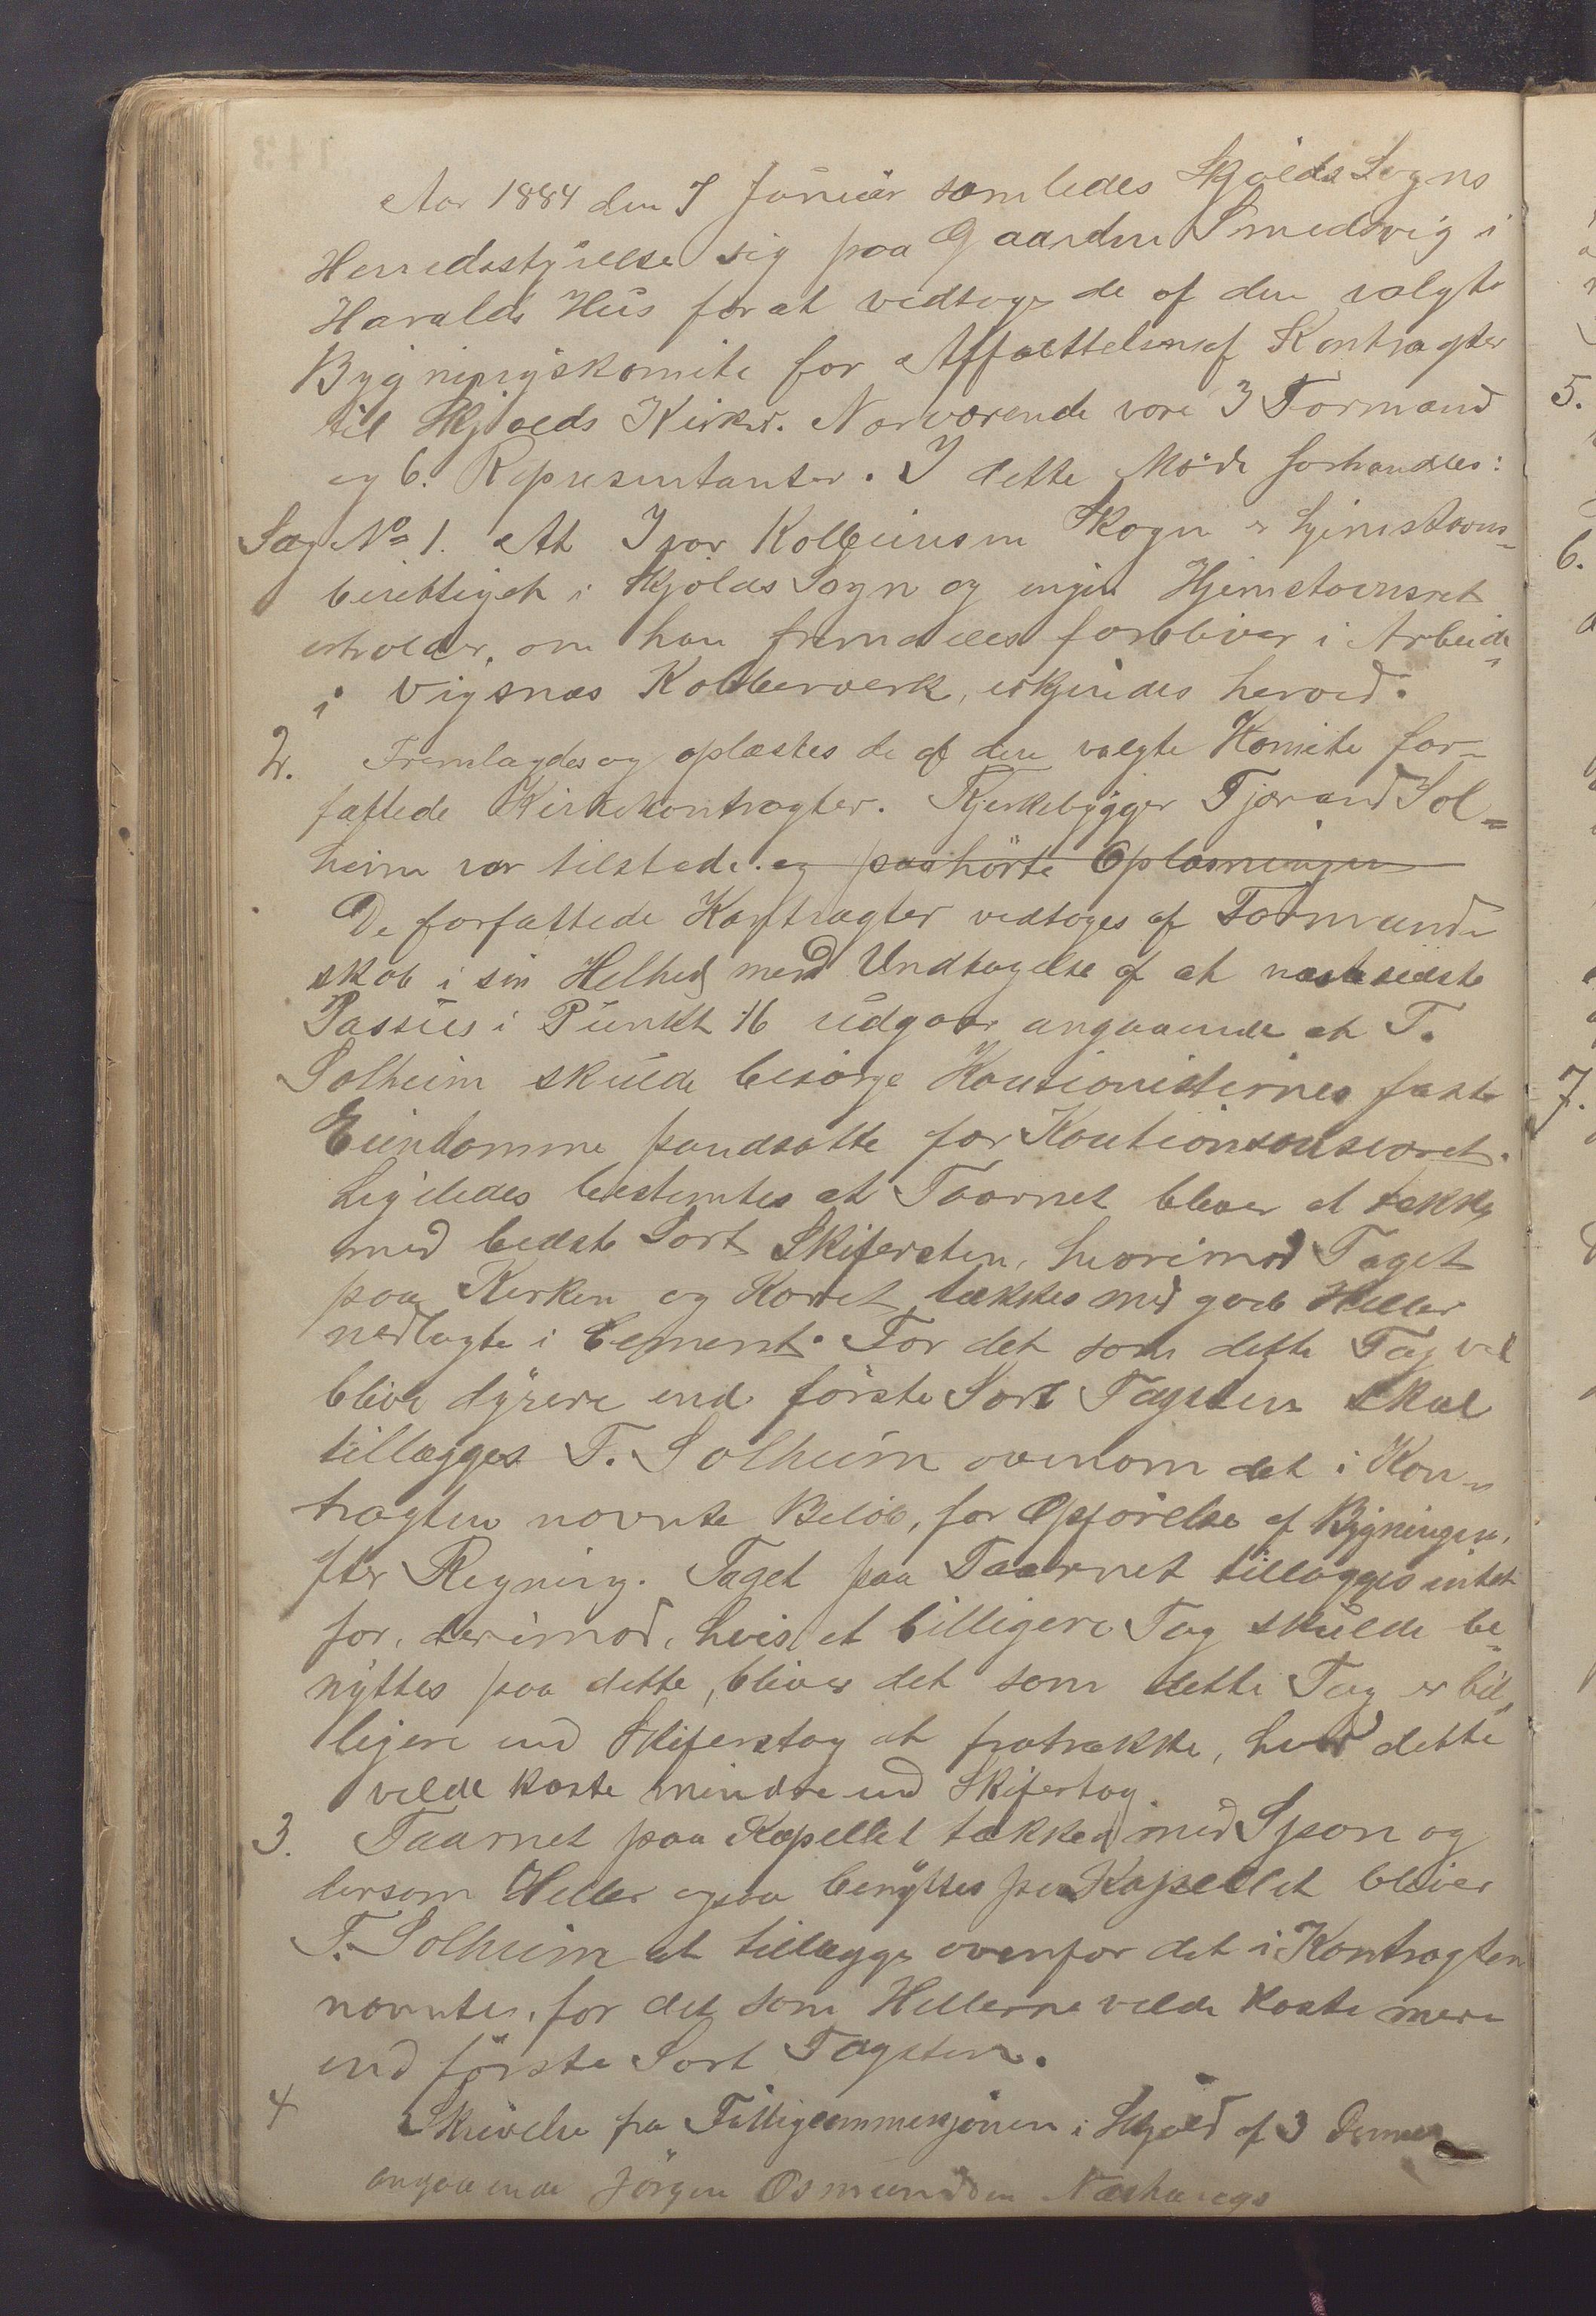 Aar 1884 den 7 Januar samledes Skjolds Sogns
Herredsstyrelse sig paa Gaarden Smedsvig i
Haralds Hus for at vedtage de af den valgte
Bygningskomite for Affattelsen af Kontragter
til Skjolds Kirker. Nærværende vare 3 Formænd
og 6. Repræsentanter. I dette Møde forhandles:
Sag No 1. At Ivar Kolbeinsen Skogn er hjemstavns-
berettiget i Skjolds Sogn og ingen Hjemstavnsret
erholder, om han fremdeles forbliver i Arbeide
i Vigsnæs Kobberværk, erkjendes herved.
2. Fremlagdes og oplæstes de af den valgte Komite for-
fattede Kirkekontragter. Kjerkebygger Tjærand Sol=
heim var tilstede. og paahørte Oplæsningen
De forfattede Kontragter vedtoges af Formand-
skab i sin Helhed med Undtagelse af at næstsidste
Passus i Punkt 16 udgaar angaaende at T.
Solheim skulde besørge Kautionisternes faste
Eiendomme pandsatte for Kautionsansvaret.
Ligeledes bestemtes at Taarnet bliver at tække
med bedste Sort Skifersten, hvorimod Taget
paa Kirken og Koret tækkes med gode Heller
nedlagte i Cement. For det som dette Tag vil
blive dyrere end første Sort Tagsten skal
tillægges T. Solheim ovenom det i Kon-
tragten nævnte Beløb, for Opførelse af Bygningen,
efter Regning. Taget paa Taarnet tillægges intet
for, derimod, hvis et billigere Tag skulde be-
nyttes paa dette, bliver det som dette Tag er bil-
ligere end Skiferstag at fratrække, hvad dette
vilde koste mindre end Skifertag.
3. Taarnet paa Kapellet tækkes med Spon og
dersom Heller ogsaa benyttes paa Kapellet bliver
T. Solheim at tillægge ovenfor det i Kontragten
nævnte, for det som Hellerne vilde koste mere
end første Sort Tagsten.
4 Skrivelse fra Fattigcommesjonen i Skjold af 3 Dsmber
angaaende Jörgen Osmundsen